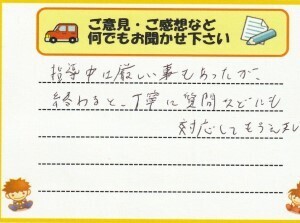 ご意見・ご感想など
何でもお聞かせ下さい
指導中は厳しい事もあったが、
終わると、丁寧に質問などにも
対応してもらえまし